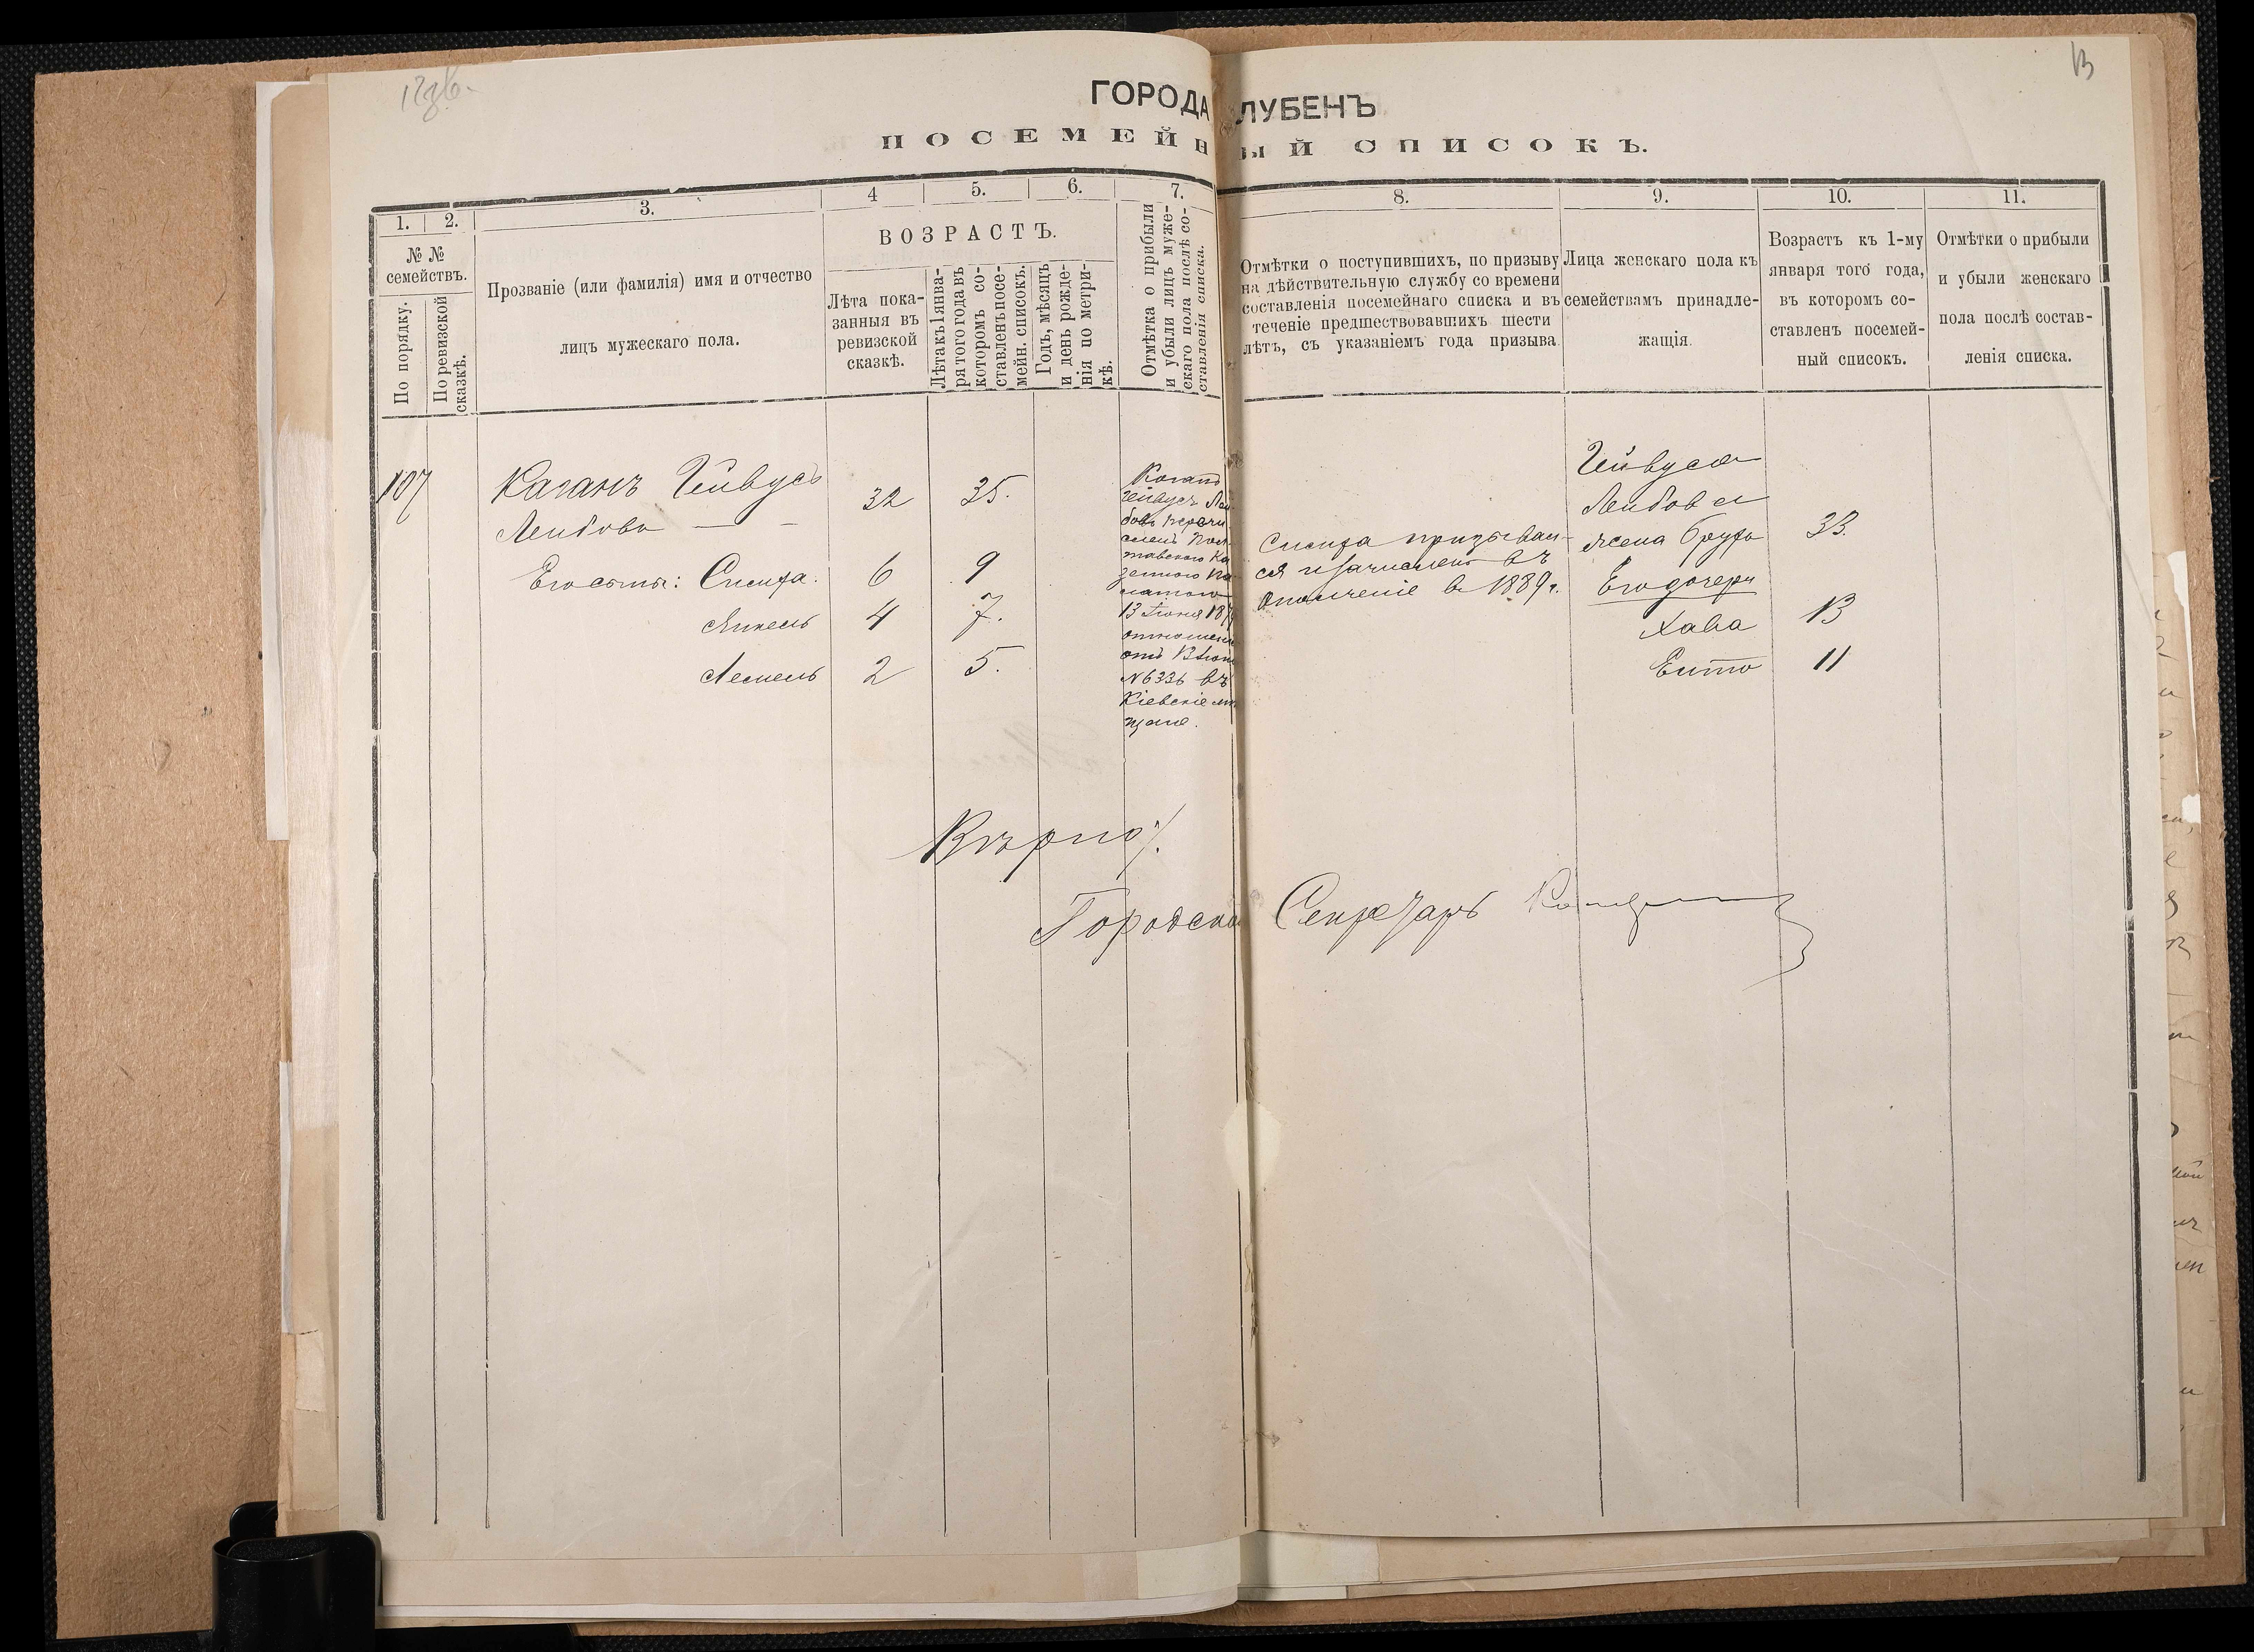 12зв.
13
ГОРОДА ЛУБЕНЪ
ПОСЕМЕЙНЫЙ СПИСОКЪ.
1.
2.
3.
4
5.
6.
7.
8.
9.
10.
11.
№ №
семействъ.
По порядку.
По ревизской
сказкѣ.
Прозваніе (или фамилія) имя и отчество
лицъ мужескаго пола.
ВОЗРАСТЪ.
Лѣта пока-
занныя въ
ревизской
сказкѣ.
Лѣта къ 1 янва-
ря того года въ
которомъ со-
ставленъ посе-
мейн. списокъ.
Годъ, мѣсяцъ
и день рожде-
нія по метри-
кѣ.
Отмѣтка о прибыли
и убыли лицъ муже-
скаго пола послѣ со-
ставленія списка.
Отмѣтки о поступившихъ, по призыву
на дѣйствительную службу со времени
составленія посемейнаго списка и въ
теченіе предшествовавшихъ шести
лѣтъ, съ указаніемъ года призыва.
Лица женскаго пола къ
семействамъ принадле-
жащія.
Возрастъ къ 1-му
января того года,
въ которомъ со-
ставленъ посемей-
ный списокъ.
Отмѣтки о прибыли
и убыли женскаго
пола послѣ состав-
ленія списка.
107
Каганъ Гейвусъ 32 35.
Лейбовъ
Его сыны: Симха. 6 9
Янкель 4 7.
Лемель 2 5.
Коганъ
Гейвусъ Лей-
бовъ перечи-
сленъ Пол-
тавскою Ка-
зенною Па-
латою
13 Іюня 187
отношені
отъ 13 Іюн
№ 6336 въ
Кіевскіе мѣ
щане.
Симха призывал-
ся и зачисленъ въ
ополченіе въ 1889 г.
Гейвуса
Лейбова
жена Бруха 33.
Его дочери
Хава 13
Ента 11
Вѣрно:
Городской Секретарь